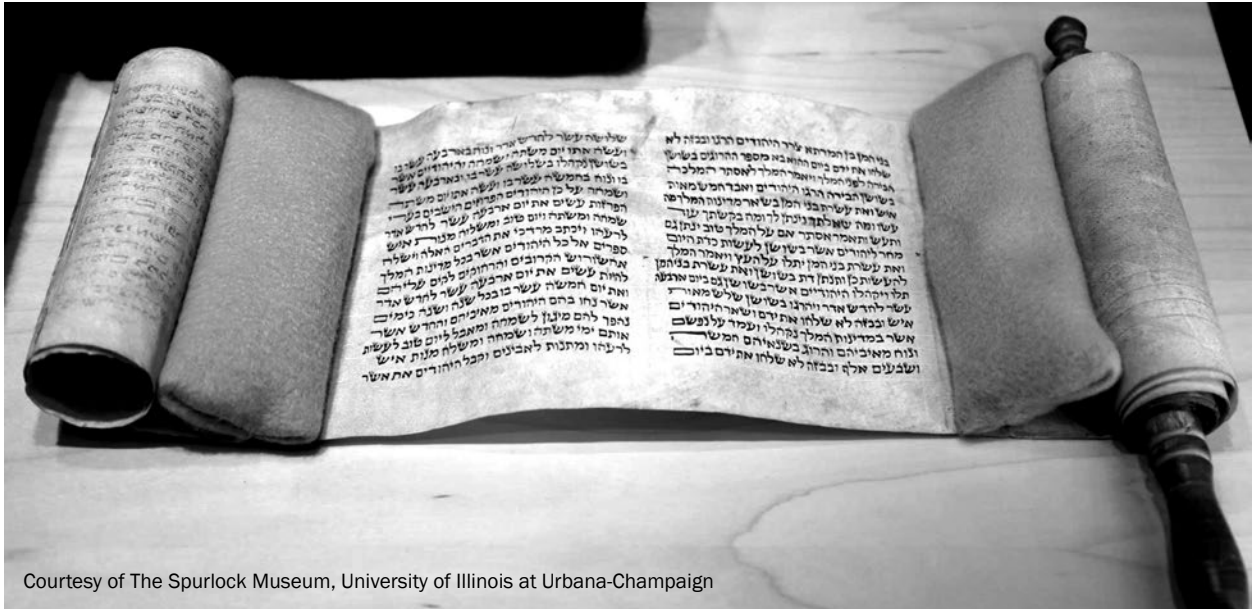 בני המן בן המדתא צרר היהודים הרגו ובבזה לא
שלחו את ידם ביום ההוא בא מספר ההרוגים בשושן
הבירה לפני המלך ויאמר המלך לאסתר המלכה
בשושן הבירה הרגו היהודים ואבד חמש מאות
איש ואת עשרת בני המן בשאר מדינות המלך מה
עשו ומה שאלתך וינתן לך ומה בקשתך עוד
ותעש ותאמר אסתר אם על המלך טוב ינתן גם
מחר ליהודים אשר בשושן לעשות כדת היום
ואת עשרת בני המן יתלו על העץ ויאמר המלך
להעשות כן ותנתן דת בשושן ואת עשרת בני המן
תלו ויקהלו היהודיים אשר בשושן גם ביום ארבעה
עשר לחדש אדר ויהרגו בשושן שלש מאות
איש ובבזה לא שלחו את ידם ושאר היהודים
אשר במדינות המלך נקהלו ועמד על נפשם
ונוח מאיביהם והרוג בשנאיהם חמשה
ושבעים אלף ובבזה לא שלחו את ידם ביום
שלושה עשר לחדש אדר ונוח בארבעה עשר בו
ועשה אתו יום משתה ושמחה והיהודיים אשר
בשושן נקהלו בשלושה עשר בו ובארבעה עשר
בו ונוח בחמשה עשר בו ועשה אתו יום משתה
ושמחה על כן היהודים הפרוזים הישבים בערי
הפרזות עשים את יום ארבעה עשר לחדש אדר
שמחה ומשתה ויום טוב ומשלוח מנות איש
לרעהו ויכתב מרדכי את הדברים האלה וישלח
ספרים אל כל היהודים אשר בכל מדינות המלך
אחשורוש הקרובים והרחוקים לקים עליהם
להיות עשים את יום ארבעה עשר לחדש אדר
ואת יום חמשה עשר בו בכל שנה ושנה כימים
אשר נחו בהם היהודים מאיביהם והחדש אשר
נהפך להם מיגון לשמחה ומאבל ליום טוב לעשות
אותם ימי משתה ושמחה ומשלח מנות איש
לרעהו ומתנות לאבינים וקבל היהודים את אשר
Courtesy of The Spurlock Museum, University of Illinois at Urbana-Champaign